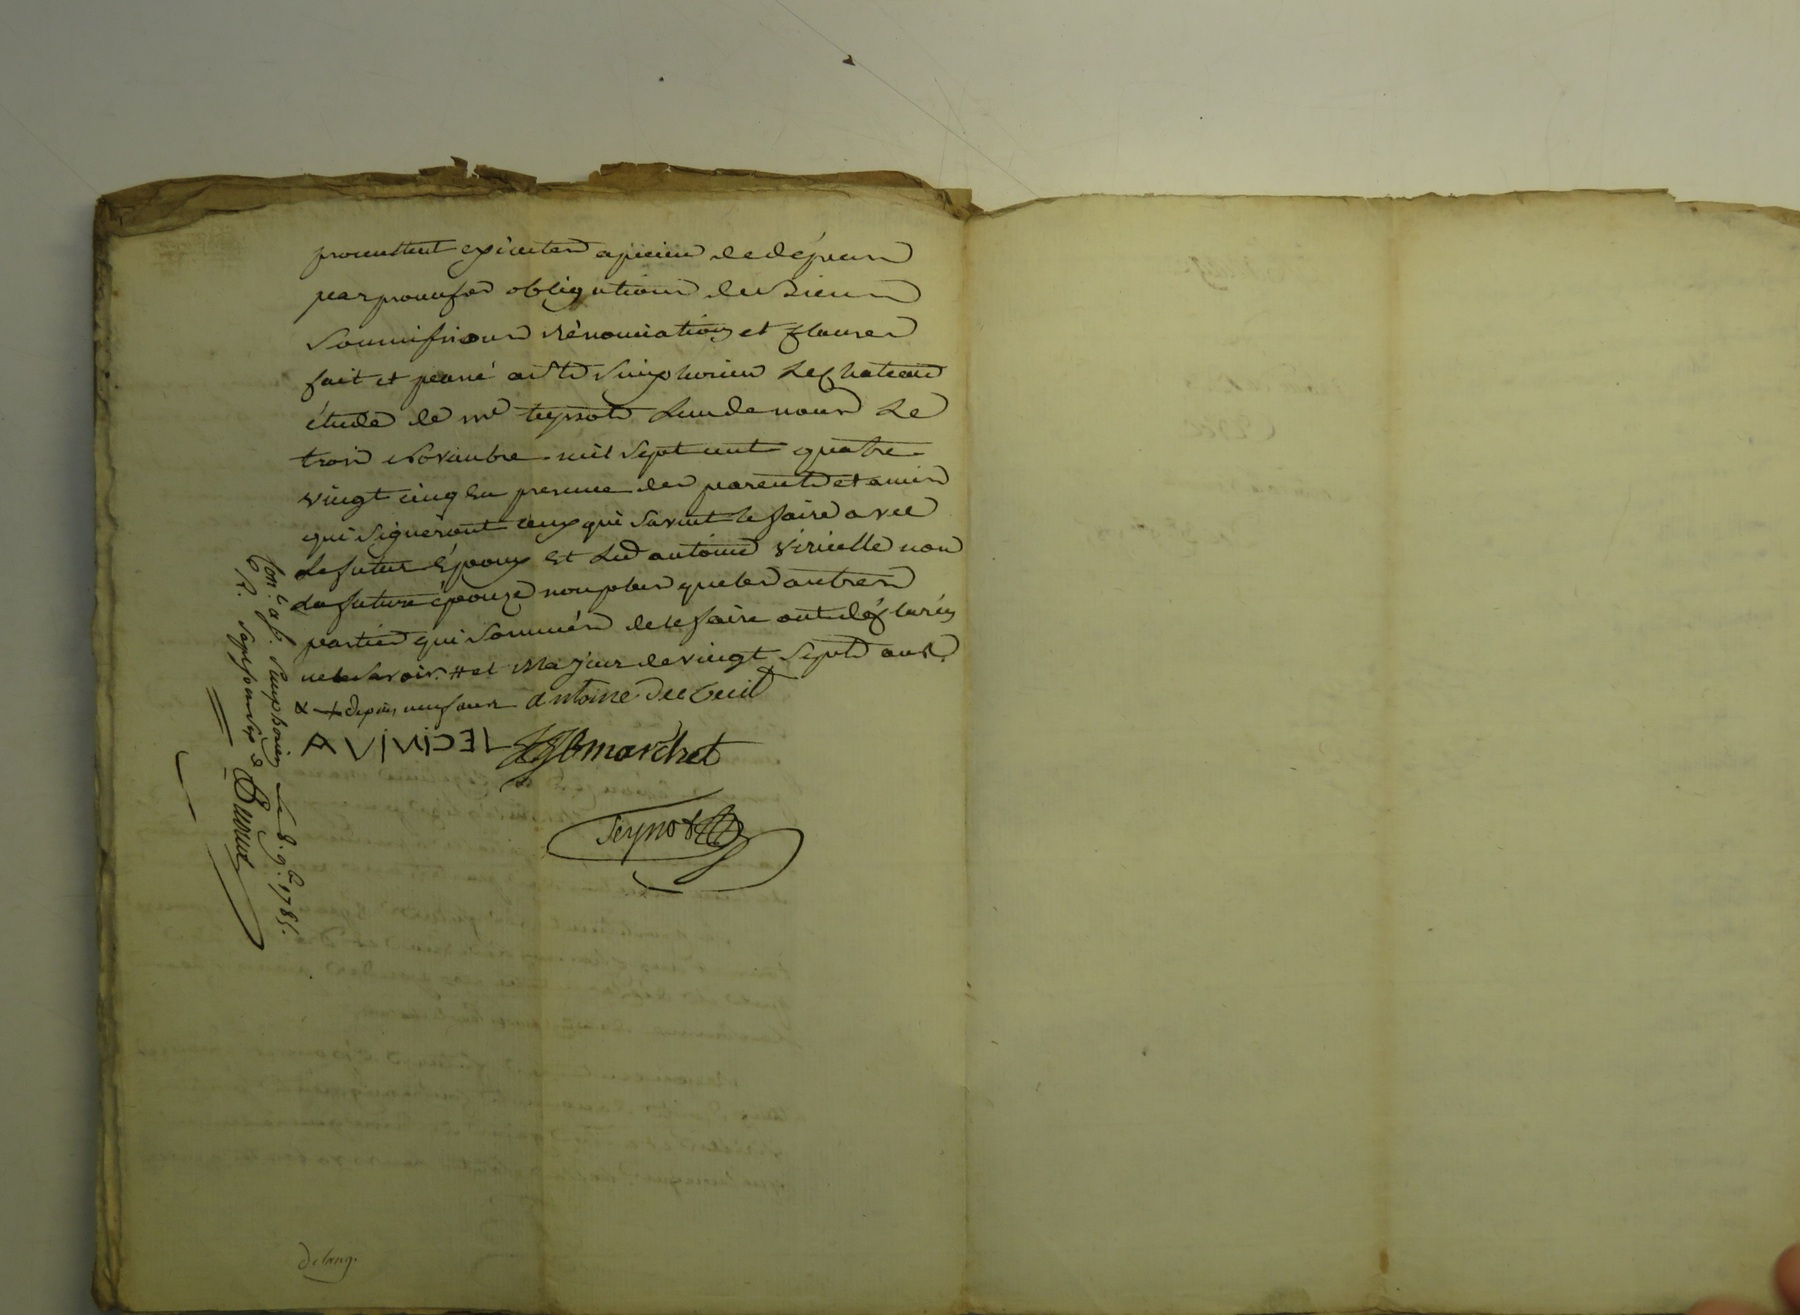 promettent exécuter a peine de dépens
par promesses obligations de biens
soumissions rénonciations et clauses
fait et passé a St Simphorien Le Chateau
étude de me teynot L'un de nous Le
trois novembre mil sept cent quatre
vingt cinq En presence des parents et amis
qui signeront ceux qui savent le faire avec
Le futur Epoux Et Led antoine Viricelle non
La future épouze non plus que les autres
parties qui sommées de le faire ont déclarés
ne le savoir # et Majeur de vingt sept ans
depuis antoine
AVIVICEL JB marchet
Teynot
Con. a St. Simphorien Le 8. 9bre 1785.
R.